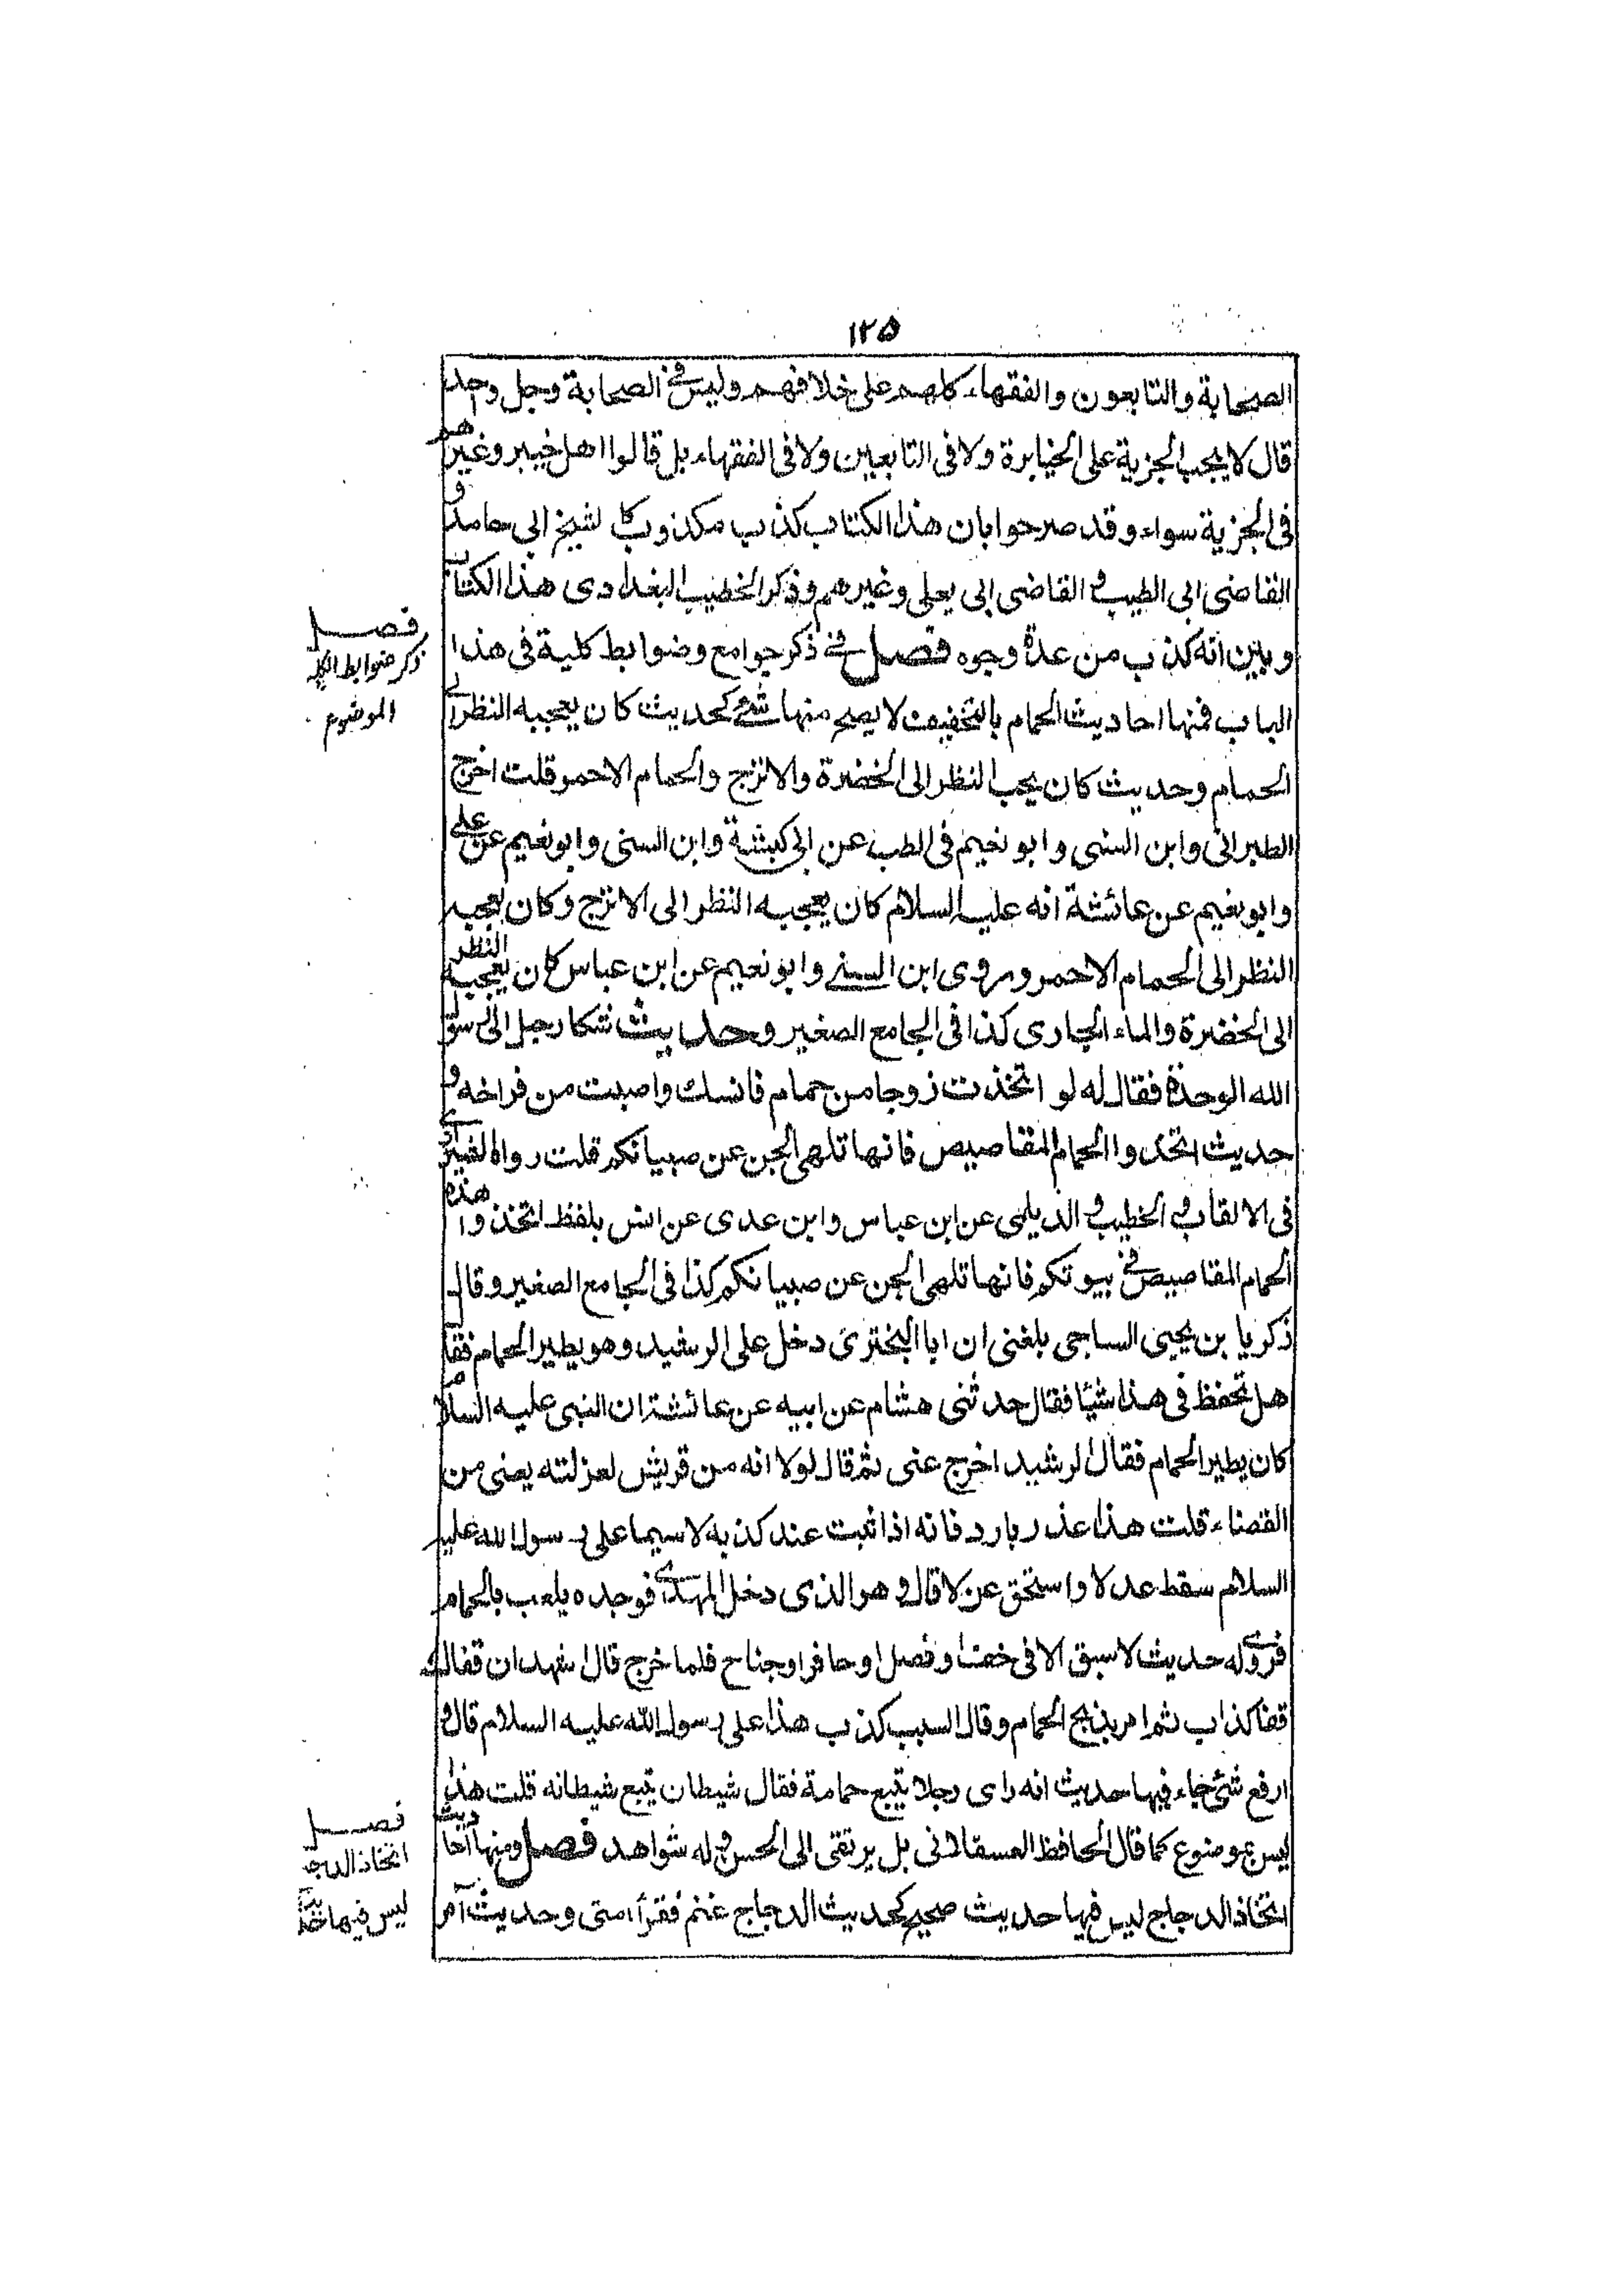 ١٢٥
الصحابة والتابعون والفقهاء كلهم على خلافهم وليس في الصحابة رجل واحد
قال لا يجب الجزية على الخيابرة ولا فى التابعين ولا فى الفقهاء بل قالوا اهل خيبر وغيرهم
فى الجزية سواء وقد صرحوا بان هذا الكتاب كذب مكذوب كالشيخ ابى حامد و
القاضى ابى الطيب و القاضى ابى يعلى وغيرهم وذكر الخطيب البغدادى هذا الكتاب
و بين انه كذب من عدة وجوه فصل في ذكر جوامع وضوابط كلية فى هذا
الباب فمنها احاديث الحمام بالتخفيف لا يصح منها شئ كحديث كان يعجبه النظر الى
الحمام وحديث كان يحب النظر الى الخضرة والاترج والحمام الاحمر قلت اخرج
الطبرانى وابن السنى و ابو نعيم فى الطب عن ابى كبشة وابن السنى وابو نعيم عن على
وابو نعيم عن عائشة انه عليه السلام كان يعجبه النظر الى الاترج وكان يعجبه
النظر الى الحمام الاحمر وروى ابن السنى وابو نعيم عن ابن عباس كان يعجبه النظر
الى الخضرة والماء الجارى كذا فى الجامع الصغير وحديث شكا رجل الى رسول
الله الوحدة فقال له لو اتخذت زوجا من حمام فانسك واصبت من فراخه و
حديث اتخذوا الحمام المقاصيص فانها تلهى الجن عن صبيانكم قلت رواه الشيرازى
فى الالقاب و الخطيب و الديلمى عن ابن عباس وابن عدى عن انس بلفظ اتخذوا هذه
الحمام المقاصيص في بيوتكم فانها تلهى الجن عن صبيانكم كذا فى الجامع الصغير وقال
زكريا بن يحيى الساجى بلغنى ان ابا البخترى دخل على الرشيد وهو يطير الحمام فقال
هل تحفظ فى هذا شيئا فقال حدثنى هشام عن ابيه عن عائشة ان النبى عليه السلام
كان يطير الحمام فقال الرشيد اخرج عنى ثم قال لولا انه من قريش لعزلته يعنى من
القضاء قلت هذا عذر بارد فانه اذا ثبت عند كذبه لا سيما على رسول الله عليه
السلام سقط عدلا واستحق عزلا قال و هو الذى دخل المهدى فوجده يلعب بالحمام
فروى له حديث لا سبق الا فى خف او نصل او حافر او جناح فلما خرج قال اشهد ان قفاك
قفا كذاب ثم امر بذبح الحمام وقال السبب كذب هذا على رسول الله عليه السلام قال و
ارفع شئ جاء فيها حديث انه راى رجلا يتبع حمامة فقال شيطان يتبع شيطانه قلت هذا
ليس بموضوع كما قال الحافظ العسقلانى بل يرتقى الى الحسن و له شواهد فصل ومنها احاديث
اتخاذ الدجاج ليس فيها حديث صحيح كحديث الدجاج غنم فقراء امتى وحديث امر
فصل
ذكر ضوابط الكلية
الموضوع
فصل
اتخاذ الدجاج
ليس فيها حديث